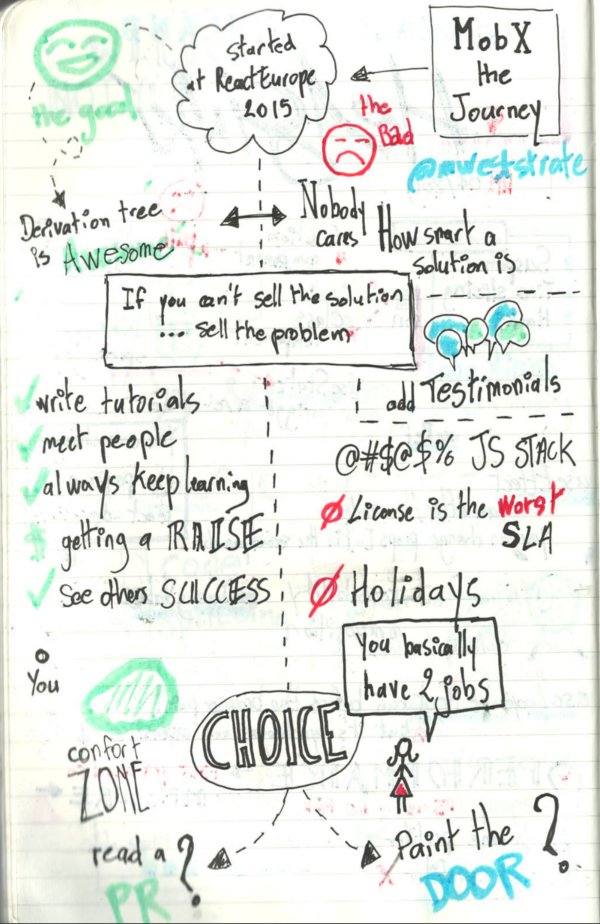 MobX
the
Journey
@mweststrate
started
at ReactEurope
2015
the good
the
Bad
Derivation tree
is Awesome
Nobody
cares
How smart a
solution is
If you can't sell the solution
... sell the problem
add Testimonials
write tutorials
meet people
always keep learning
getting a RAISE
see others SUCCESS
@#$@$% JS STACK
License is the worst
SLA
Holidays
You basically
have 2 jobs
You
confort
ZONE
CHOICE
read a
PR ?
Paint the
DOOR ?